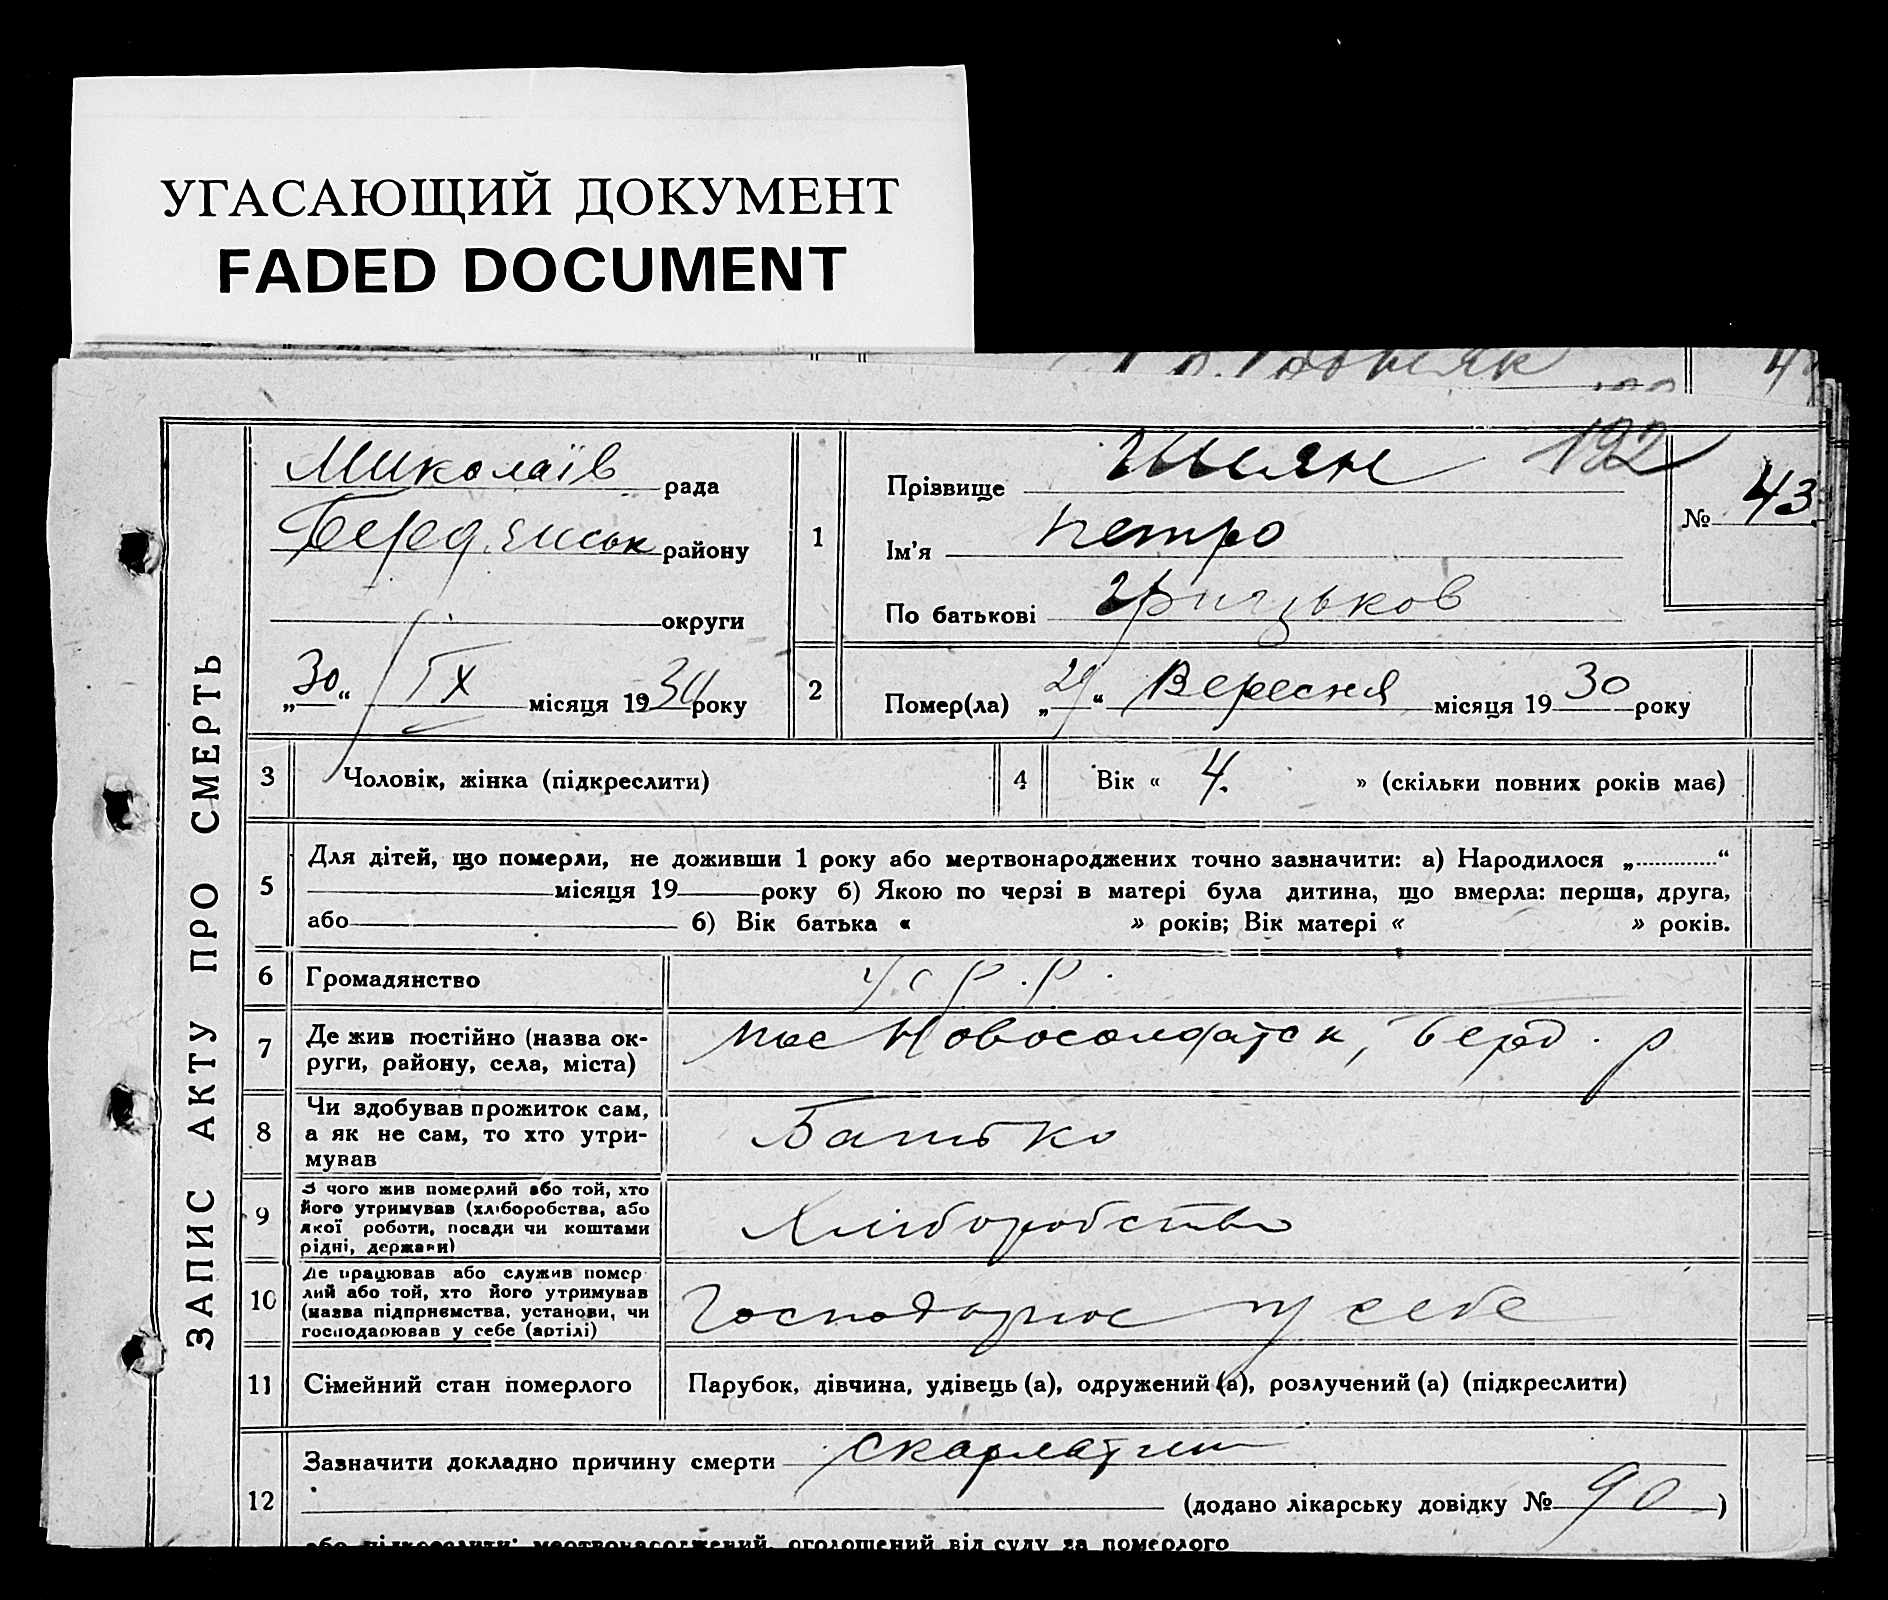 УГАСАЮЩИЙ ДОКУМЕНТ
FADED DOCUMENT
192
ЗАПИС АКТУ ПРО СМЕРТЬ
Миколаїв рада
Берд.янськ району
округи
„30“ IX місяця 1930 року
1
Прізвище
Ім’я Петро
По батькові Грицьков
№ 43.
2
Помер(ла) „29“ Вересня місяця 1930 року
3 Чоловік, жінка (підкреслити)
4 Вік « 4. » (скільки повних років має)
5
Для дітей, що померли, не доживши 1 року або мертвонароджених точно зазначити: а) Народилося „ “
місяця 19 року б) Якою по черзі в матері була дитина, що вмерла: перша, друга,
або б) Вік батька « » років; Вік матері « » років.
6 Громадянство УСРР.
7 Де жив постійно (назва ок-
руги, району, села, міста)
Новосолдатськ, Берд. р
8 Чи здобував прожиток сам,
а як не сам, то хто утри-
мував
Батько
9 З чого жив померлий або той, хто
його утримував (хліборобства, або
якої роботи, посади чи коштами
рідні, держави)
Хліборобство
10 Де працював або служив помер-
лий або той, хто його утримував
(назва підприємства, установи, чи
господарював у себе (артілі)
у себе
11 Сімейний стан померлого
Парубок, дівчина, удівець (а), одружений (а), розлучений (а) (підкреслити)
12
Зазначити докладно причину смерти скарлатин
(додано лікарську довідку № 90)
або підкреслити: мертвонароджений, оголошений від суду за померлого